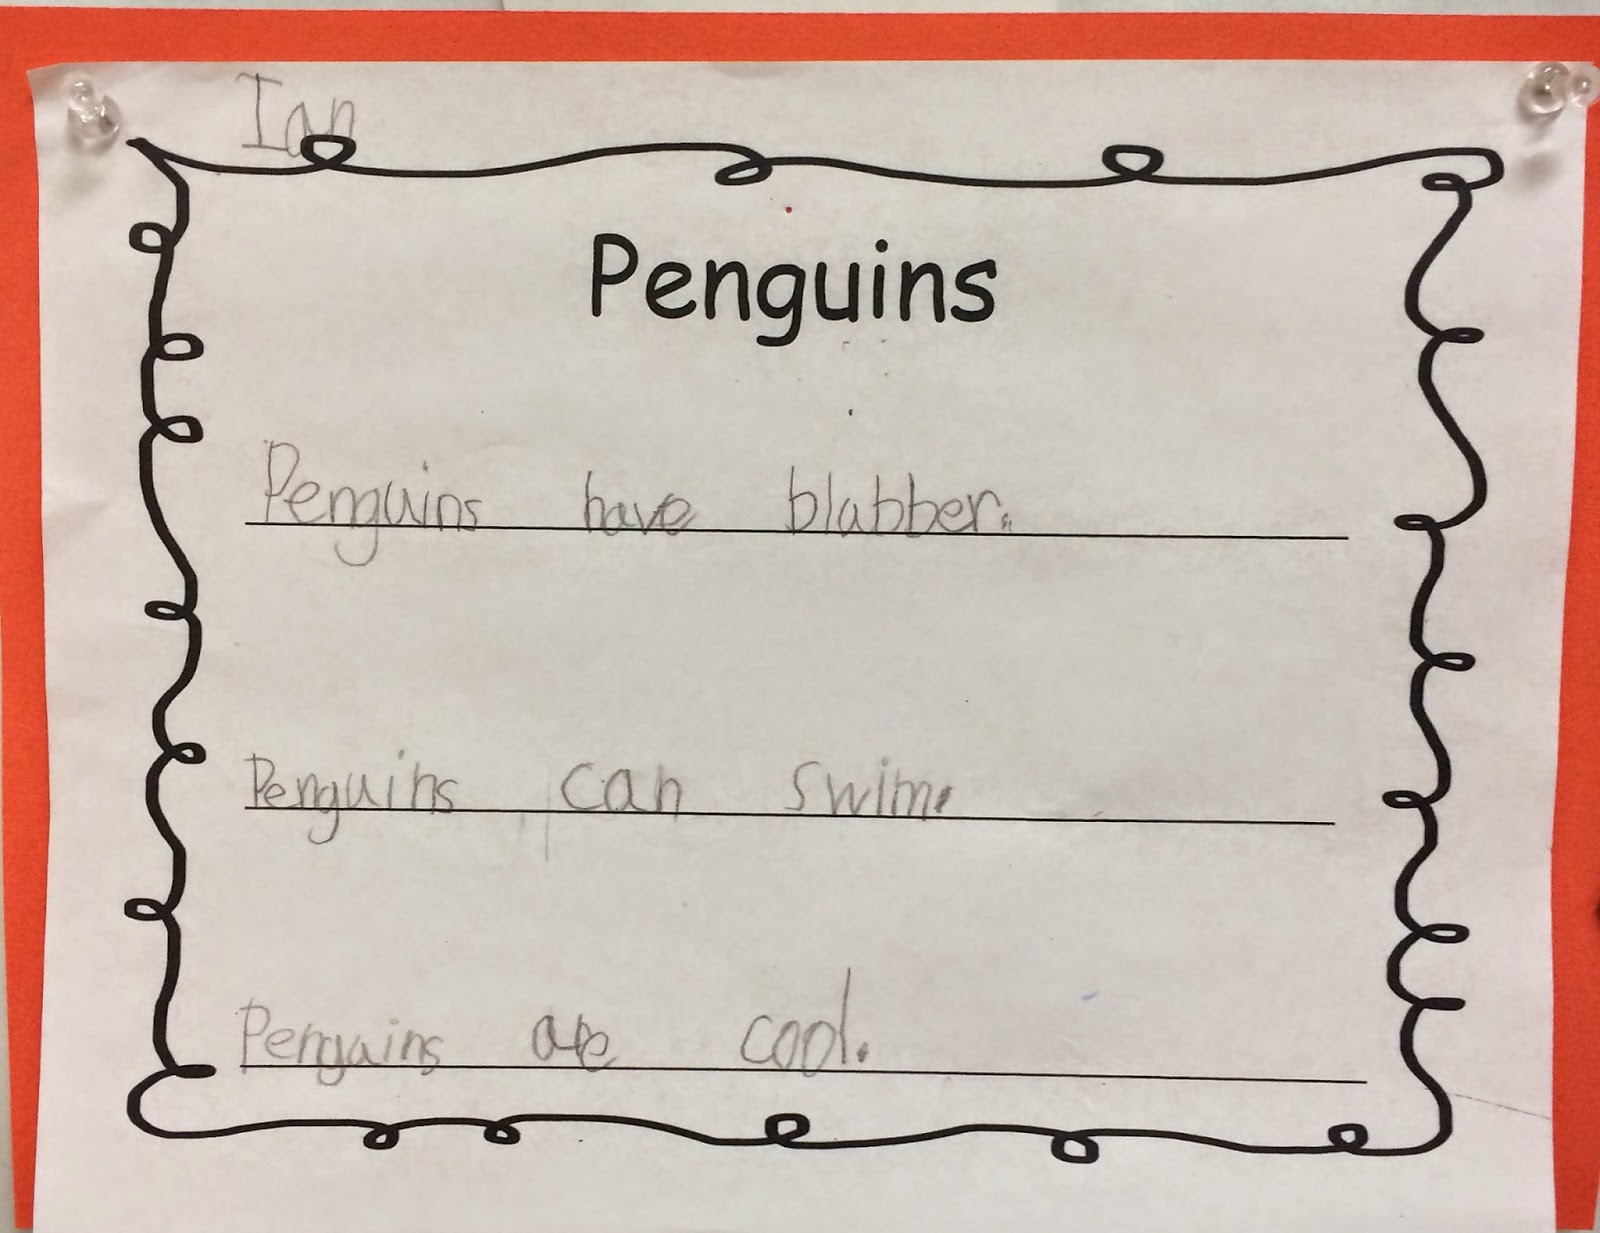 Ian
Penguins
Penguins have blabber.
Penguins can swim.
Pengains are cool.